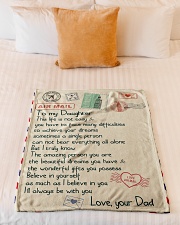 AIR MAIL
To my Daughter
This life is not easy &
you have to pass many difficulties
to achieve your dreams
sometimes a single person
can not bear everything all alone
But I truly know
The amazing person you are
the beautiful dreams you have &
the wonderful gifts you possess
Believe in yourself
as much as I believe in you
I'll always be with you
Love, your Dad